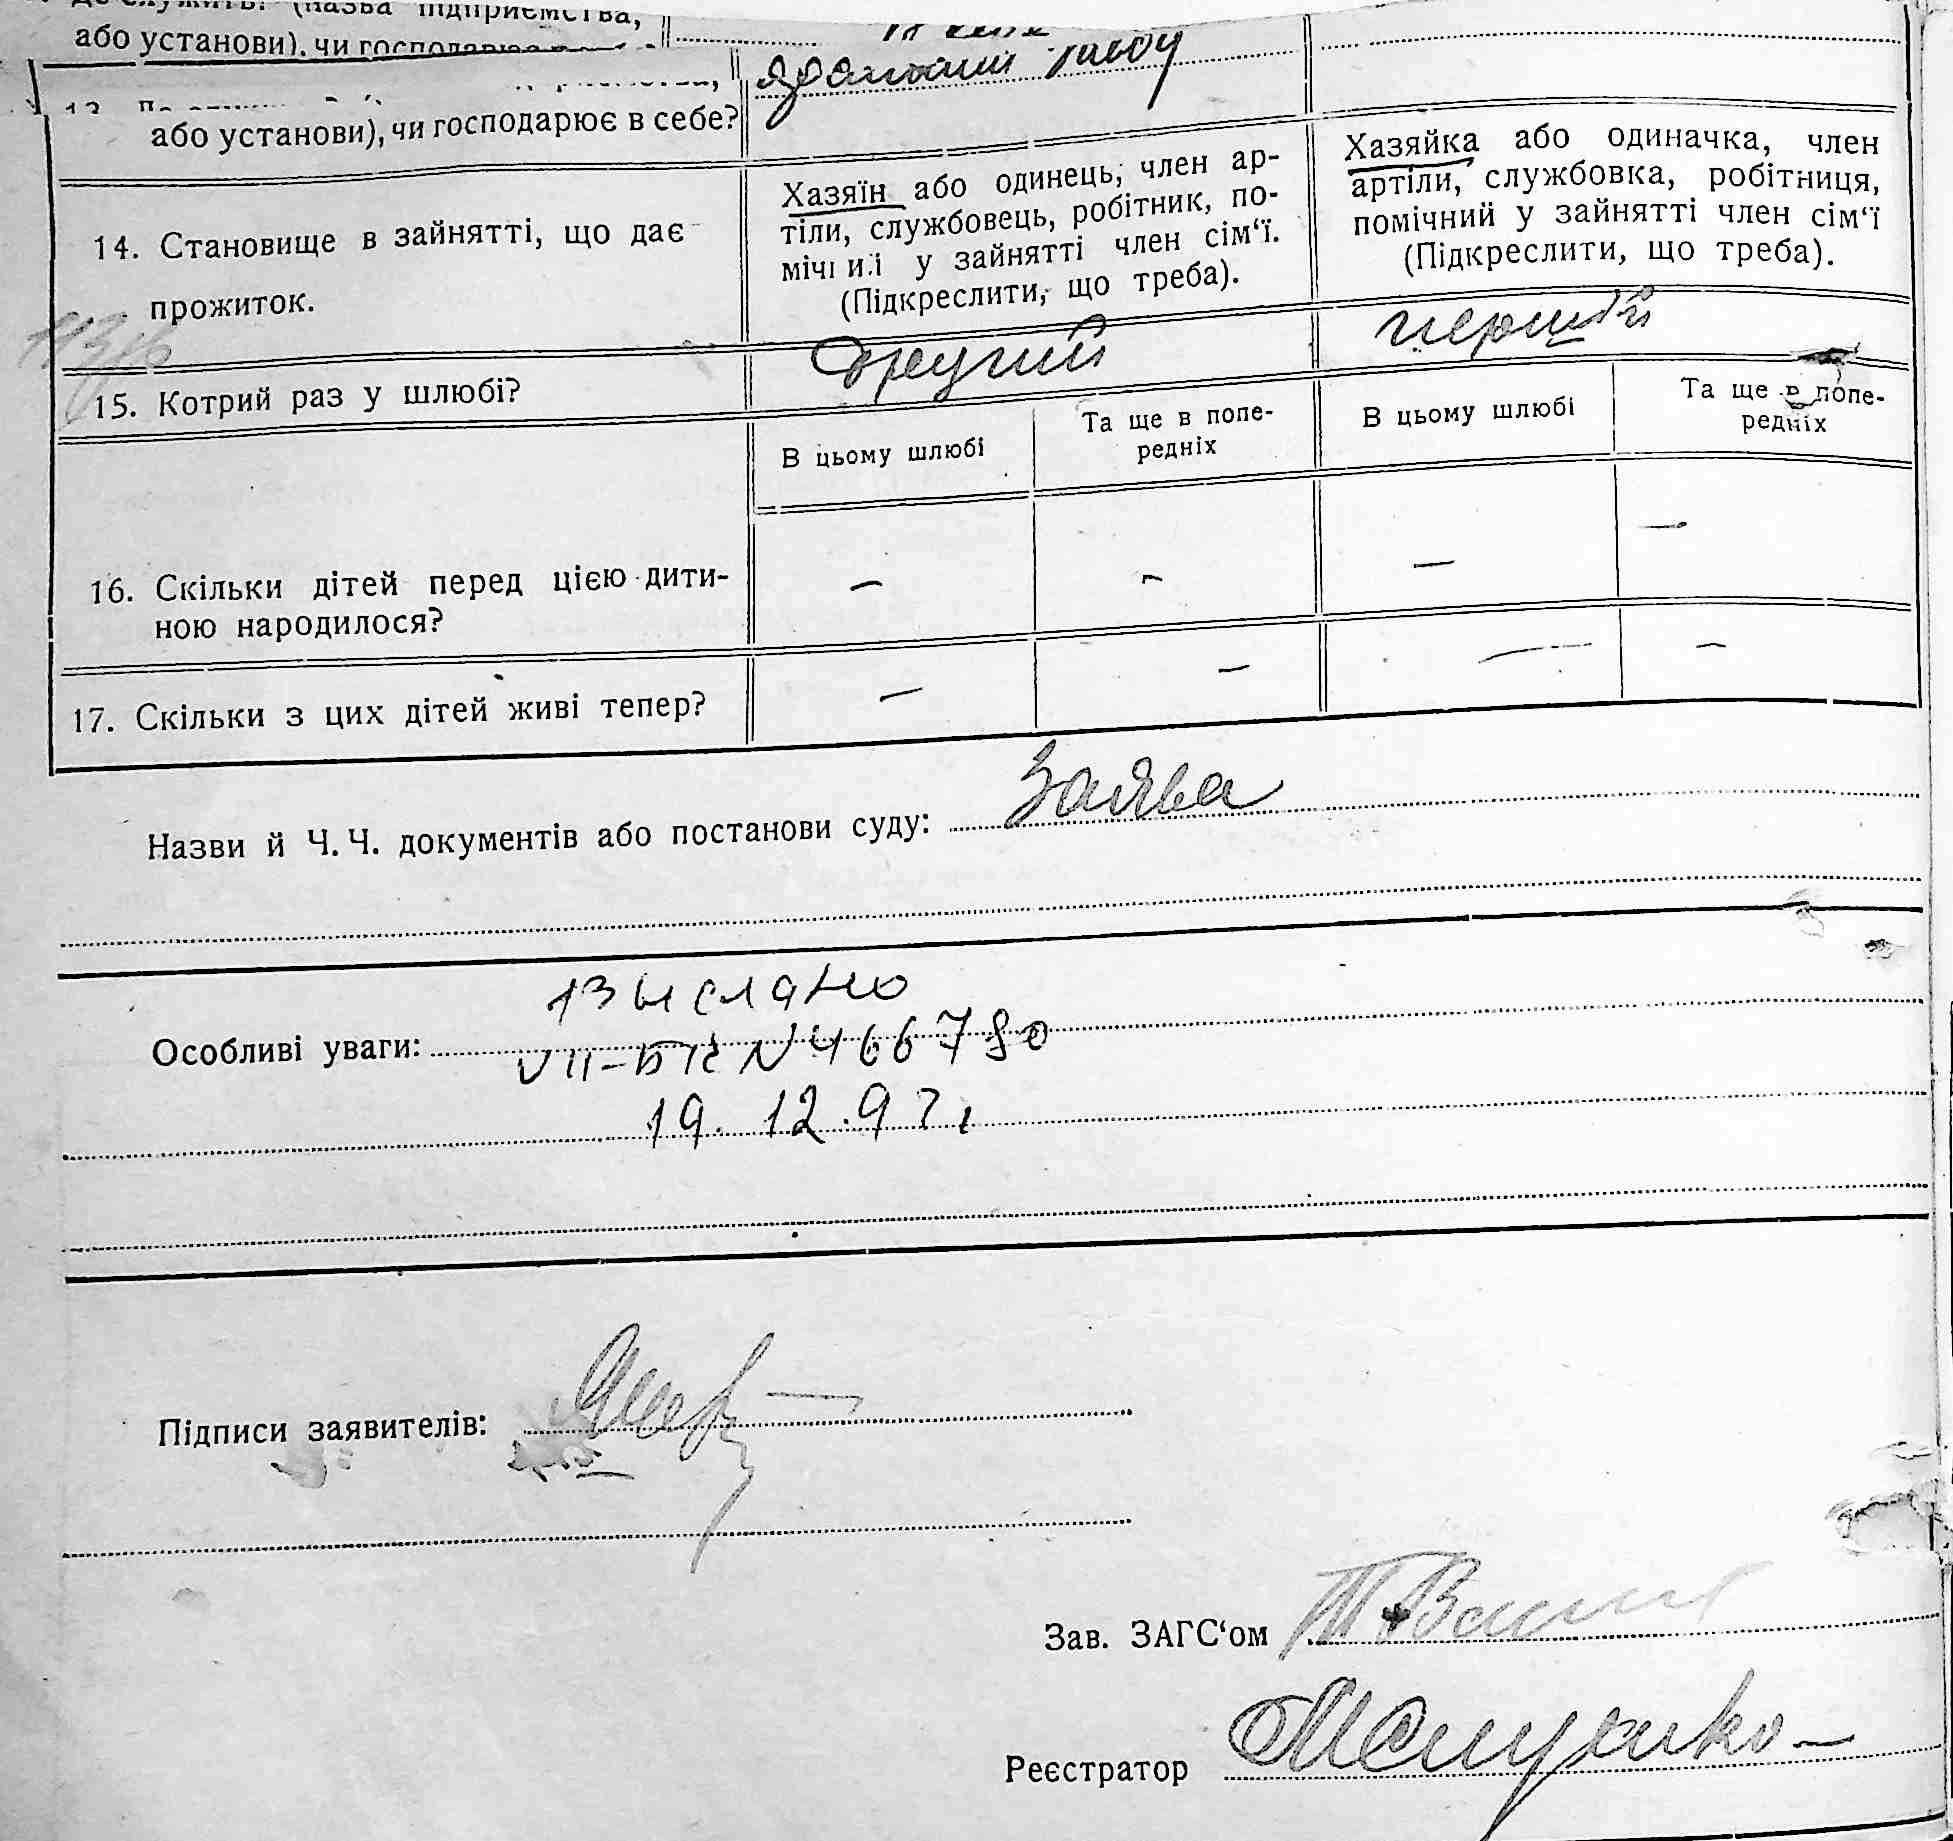 (назва підприємства,
або установи), чи
або установи), чи господарює в себе?
14. Становище в зайнятті, що дає
прожиток.
Хазяїн або одинець, член ар-
тіли, службовець, робітник, по-
мічний у зайнятті член сім‘ї.
(Підкреслити, що треба).
Хазяйка або одиначка, член
артіли, службовка, робітниця,
помічний у зайнятті член сім‘ї
(Підкреслити, що треба).
15. Котрий раз у шлюбі?
другий
перший
В цьому шлюбі
Та ще в попе-
редніх
В цьому шлюбі
Та ще в попе-
редніх
16. Скільки дітей перед цією дити-
ною народилося?
— — — —
17. Скільки з цих дітей живі тепер?
— — — —
Назви й Ч. Ч. документів або постанови суду: Заява
Выслано
Особливі уваги: VII-БК N 466780
19. 12. 97г
Підписи заявителів:
Зав. ЗАГС‘ом
Реєстратор